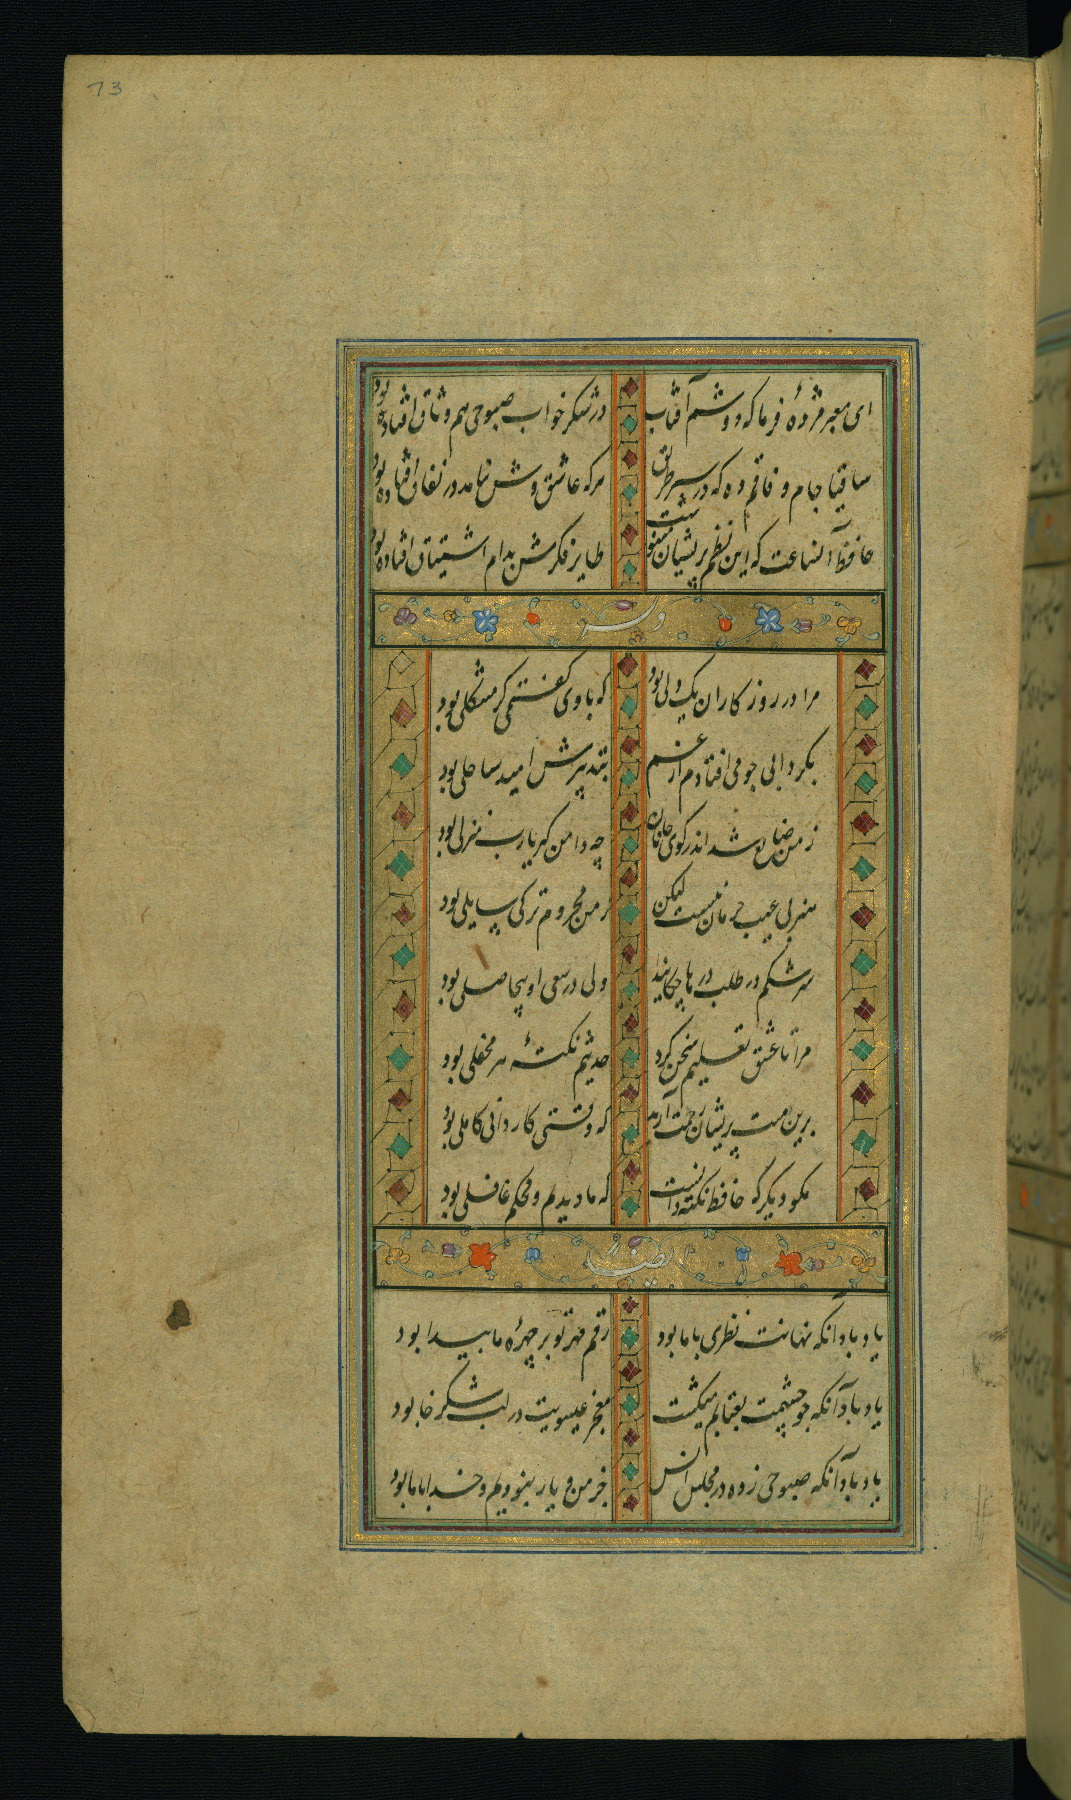 73
ای معبر مژدهٔ فرما که دوشم آفتاب
در شکر خواب صبوحی هم وثاق افتاده بود
ساقیا جام وفاقم ده که در سیر طریق
هرکه عاشق وش نیامد در نفاق افتاده بود
حافظ آنساعت که این نظم پریشان مینوشت
طایر فکرش بدام اشتیاق افتاده بود
وله
مرا در روزکاران یک دلی بود
که با وی گفتمی کر مشکلی بود
بکردابی چو می افتادم از غم
بتدبیرش امید ساحلی بود
ز من ضایع شد اندر کوی جانان
چه دامن کیر یارب منزلی بود
هنر بی عیب حرمان نیست لیکن
ز من محروم تر کی سایلی بود
سرشکم در طلب درها چکانید
ولی در سعی او بیحاصلی بود
مرا تا عشق تعلیم سخن کرد
حدیثم نکتهٔ هر محفلی بود
برین مست پریشان رحمت آرید
که وقتی کاردانی کاملی بود
مکو دیکر که حافظ نکته دانست
که ما دیدیم و محکم غافلی بود
ایضا
یاد باد آنکه نهانت نظری با ما بود
رقم مهر تو بر چهرهٔ ما پیدا بود
یاد باد آنکه چو چشمت بعتابم میکشت
معجز عیسویت در لب شکر خا بود
یاد باد آنکه صبوحی زده در مجلس انس
جز من و یار نبودیم و خدا با ما بود